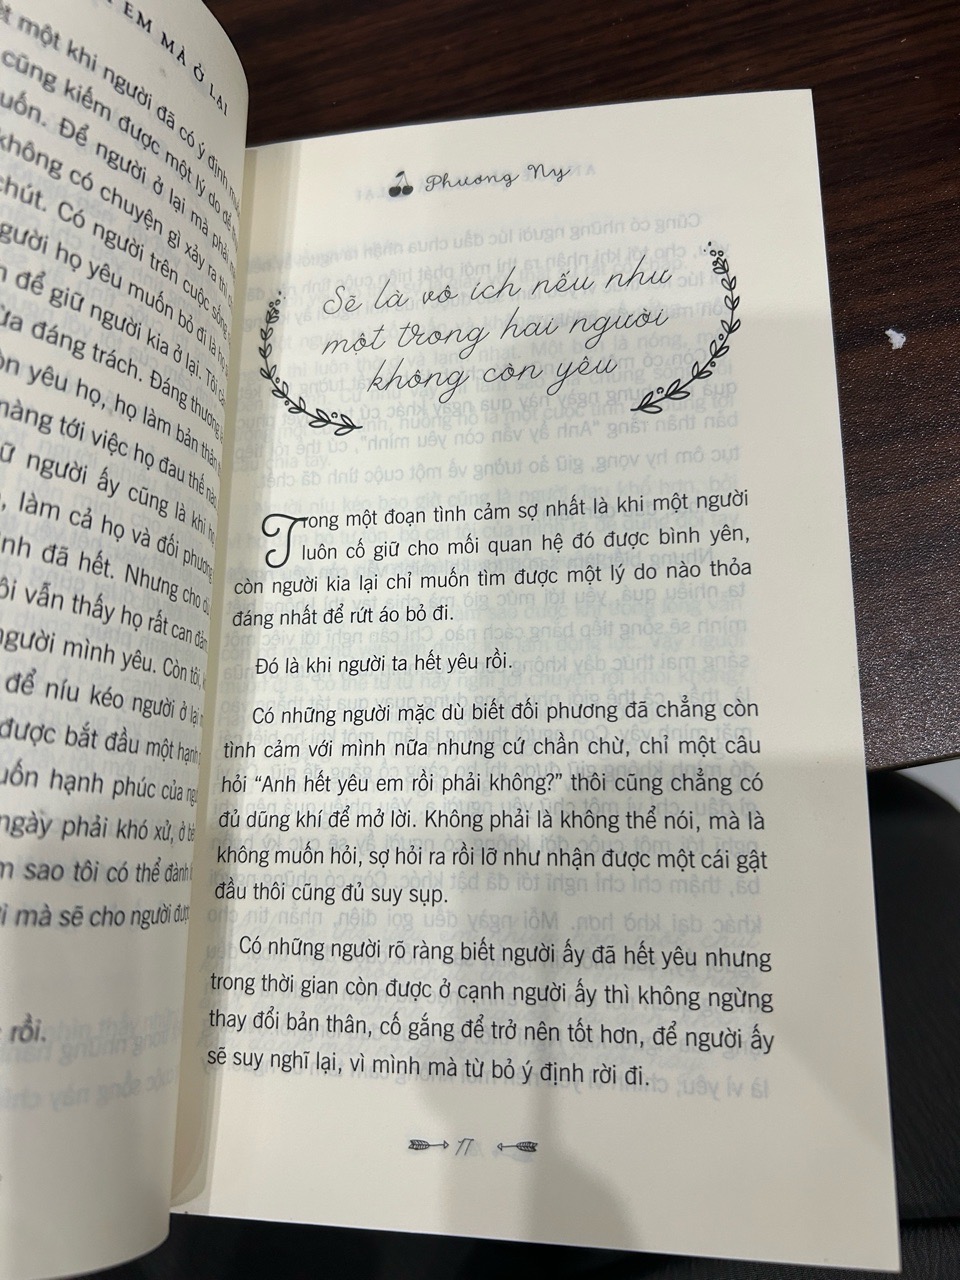 EM MÀ Ở LẠI
một khi người đã có ý định
cũng kiếm được một lý do để
Để người ở lại mà phải
không có chuyện gì xảy ra thì
chút. Có người trên cuộc sống
người họ yêu muốn bỏ đi là họ
để giữ người kia ở lại. Tôi
đáng trách. Đáng thương
yêu họ, họ làm bản thân
màng tới việc họ đau thế nào
người ấy cũng là khi họ
làm cả họ và đối phương
đã hết. Nhưng cho dù
vẫn thấy họ rất can đảm
người mình yêu. Còn tôi,
để níu kéo người ở lại
được bắt đầu một hạnh
hạnh phúc của
ngày phải khó xử, ở
sao tôi có thể đành
mà sẽ cho người được
rồi.
Phương Ny
Sẽ là vô ích nếu như
một trong hai người
không còn yêu
Trong một đoạn tình cảm sợ nhất là khi một người
luôn cố giữ cho mối quan hệ đó được bình yên,
còn người kia lại chỉ muốn tìm được một lý do nào thỏa
đáng nhất để rứt áo bỏ đi.
Đó là khi người ta hết yêu rồi.
Có những người mặc dù biết đối phương đã chẳng còn
tình cảm với mình nữa nhưng cứ chần chừ, chỉ một câu
hỏi “Anh hết yêu em rồi phải không?” thôi cũng chẳng có
đủ dũng khí để mở lời. Không phải là không thể nói, mà là
không muốn hỏi, sợ hỏi ra rồi lỡ như nhận được một cái gật
đầu thôi cũng đủ suy sụp.
Có những người rõ ràng biết người ấy đã hết yêu nhưng
trong thời gian còn được ở cạnh người ấy thì không ngừng
thay đổi bản thân, cố gắng để trở nên tốt hơn, để người ấy
sẽ suy nghĩ lại, vì mình mà từ bỏ ý định rời đi.
17